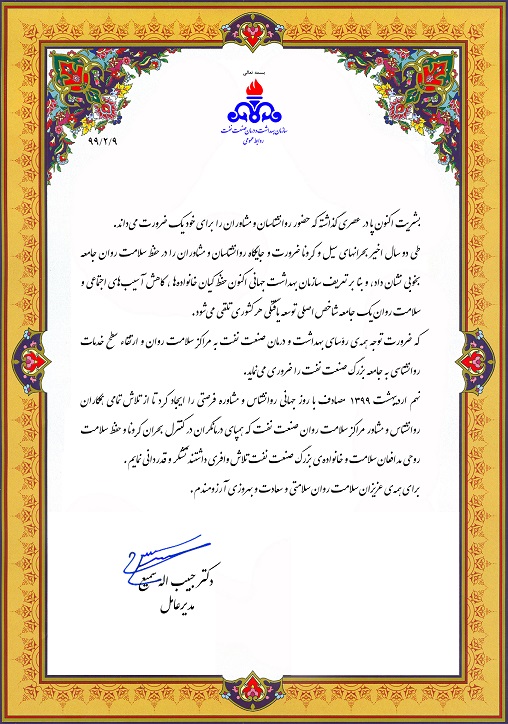 بسمه تعالی
سازمان بهداشت و درمان صنعت نفت
روابط عمومی
۹۹/۲/۹
بشریت اکنون پا در عصری گذاشته که حضور روانشناسان و مشاوران را برای خود یک ضرورت می‌داند.
طی دو سال اخیر بحرانهای سیل و کرونا ضرورت و جایگاه روانشناسان و مشاوران را در حفظ سلامت روان جامعه
بخوبی نشان داد، و بنا بر تعریف سازمان بهداشت جهانی اکنون حفظ کیان خانواده‌ها، کاهش آسیب‌های اجتماعی و
سلامت روان یک جامعه شاخص اصلی توسعه یافتگی هر کشوری تلقی می‌شود.
که ضرورت توجه همه‌ی رؤسای بهداشت و درمان صنعت نفت به مراکز سلامت روان و ارتقاء سطح خدمات
روانشناسی به جامعه بزرگ صنعت نفت را ضروری می‌نماید.
نهم اردیبهشت ۱۳۹۹ مصادف با روز جهانی روانشناس و مشاوره فرصتی را ایجاد کرد تا از تلاش تمامی همکاران
روانشناس و مشاور مراکز سلامت روان صنعت نفت که همپای درمانگران در کنترل بحران کرونا و حفظ سلامت
روحی مدافعان سلامت و خانواده‌ی بزرگ صنعت نفت تلاش وافری داشتند تشکر و قدردانی نمایم.
برای همه‌ی عزیزان سلامت روان سلامتی و سعادت و بهروزی آرزومندم.
دکتر حبیب اله سمیع
مدیر عامل